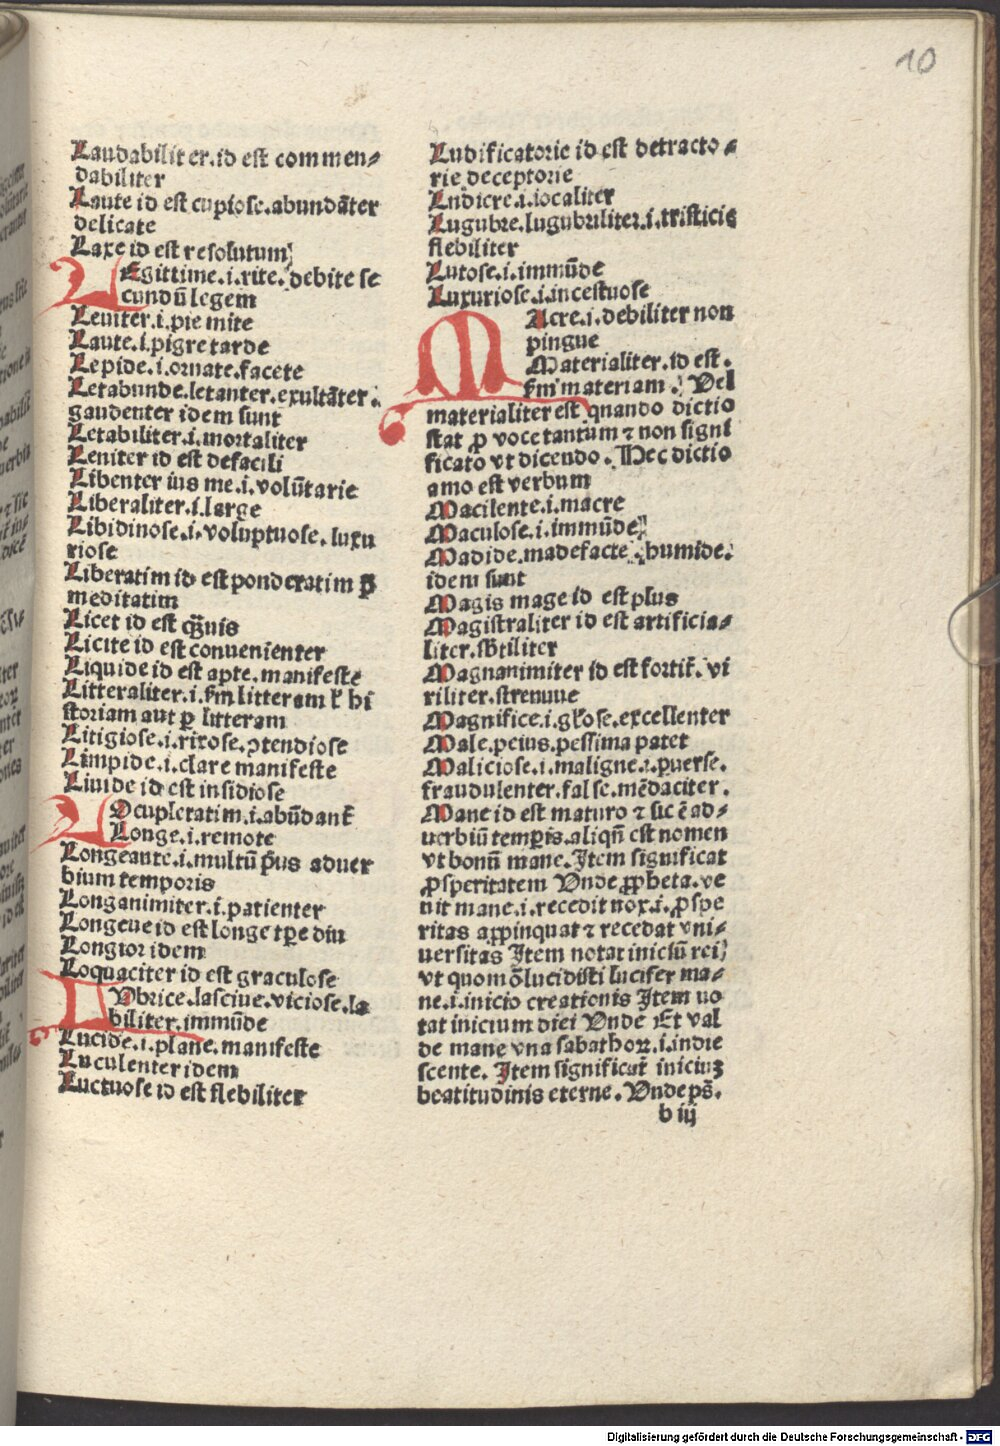 10
Laudabiliter.id est commen⸗
dabiliter
Laute id est cupiose.abundãter
delicate
Laxe id est resolutum
LEgittime.i.rite.debite se
cundũ legem
Leuiter.i.pie mite
Laute.i.pigre tarde
Lepide.i.ornate.facete
Letabunde.letanter.exultãter.
gaudenter idem sunt
Letabiliter.i.mortaliter
Leniter id est defacili
Libenter iussu me.i.volũtarie
Liberaliter.i.large
Libidinose.i.voluptuose.luxu
riose
Liberatim id est ponderatim p̃
meditatim
Licet id est qẽuis
Licite id est conuenienter
Liquide id est apte.manifeste
Litteraliter.i.fm̃ litteram ł hi
storiam aut ꝑ litteram
Litigiose.i.rixose.ↄtendiose
Limpide.i.clare manifeste
Liuide id est insidiose
LOcupletatim.i.abũdant̃
Longe.i.remote
Longeante.i.multũ p̃us aduer
bium temporis
Longanimiter.i.patienter
Longeue id est longe tꝑe diu
Longior idem
Loquaciter id est graculose
LVbrice.lasciue.viciose.la
biliter.immũde
Lucide.i.plane.manifeste
Luculenter idem
Luctuose id est flebiliter
Ludificatorie id est detracto⸗
rie deceptorie
Ludicre.i.iocaliter
Lugubre.lugubriliter.i.tristicie
flebiliter
Lutose.i.immũde
Luxuriose.i.incestuose
MAcre.i.debiliter non
pingue
Materialiter.id est.
fm̃ materiam. Vel
materialiter est quando dictio
stat ꝓ voce tantum ⁊ non signi
ficato vt dicendo. Hec dictio
amo est verbum
Macilente.i.macre
Maculose.i.immũde
Madide.madefacte.humide.
idem sunt
Magis mage id est plus
Magistraliter id est artificia⸗
liter.sb̃tiliter
Magnanimiter id est fortit̃. vi
riliter.strenuue
Magnifice.i.gl̃ose.excellenter
Male.peius.pessima patet
Maliciose.i.maligne.i.ꝑuerse.
fraudulenter.false.mẽdaciter.
Mane id est maturo ⁊ sic ẽ ad⸗
uerbiũ temꝑis.aliqñ est nomen
vt bonũ mane.Item significat
ꝓsperitatem Vnde ꝓpheta.ve
nit mane.i.recedit nox.i.ꝓspe
ritas aꝓpinquat ⁊ recedat vni⸗
uersitas Item notat iniciũ rei
vt quomõ lucidisti lucifer ma⸗
ne.i.inicio creationis Item no
tat inicium diei Vnde Et val
de mane vna sabathoꝝ.i.indie
scente. Item significat̃ inicium
beatitudinis eterne. Vnde ps̃.
b iij
Digitalisierung gefördert durch die Deutsche Forschungsgemeinschaft - DFG